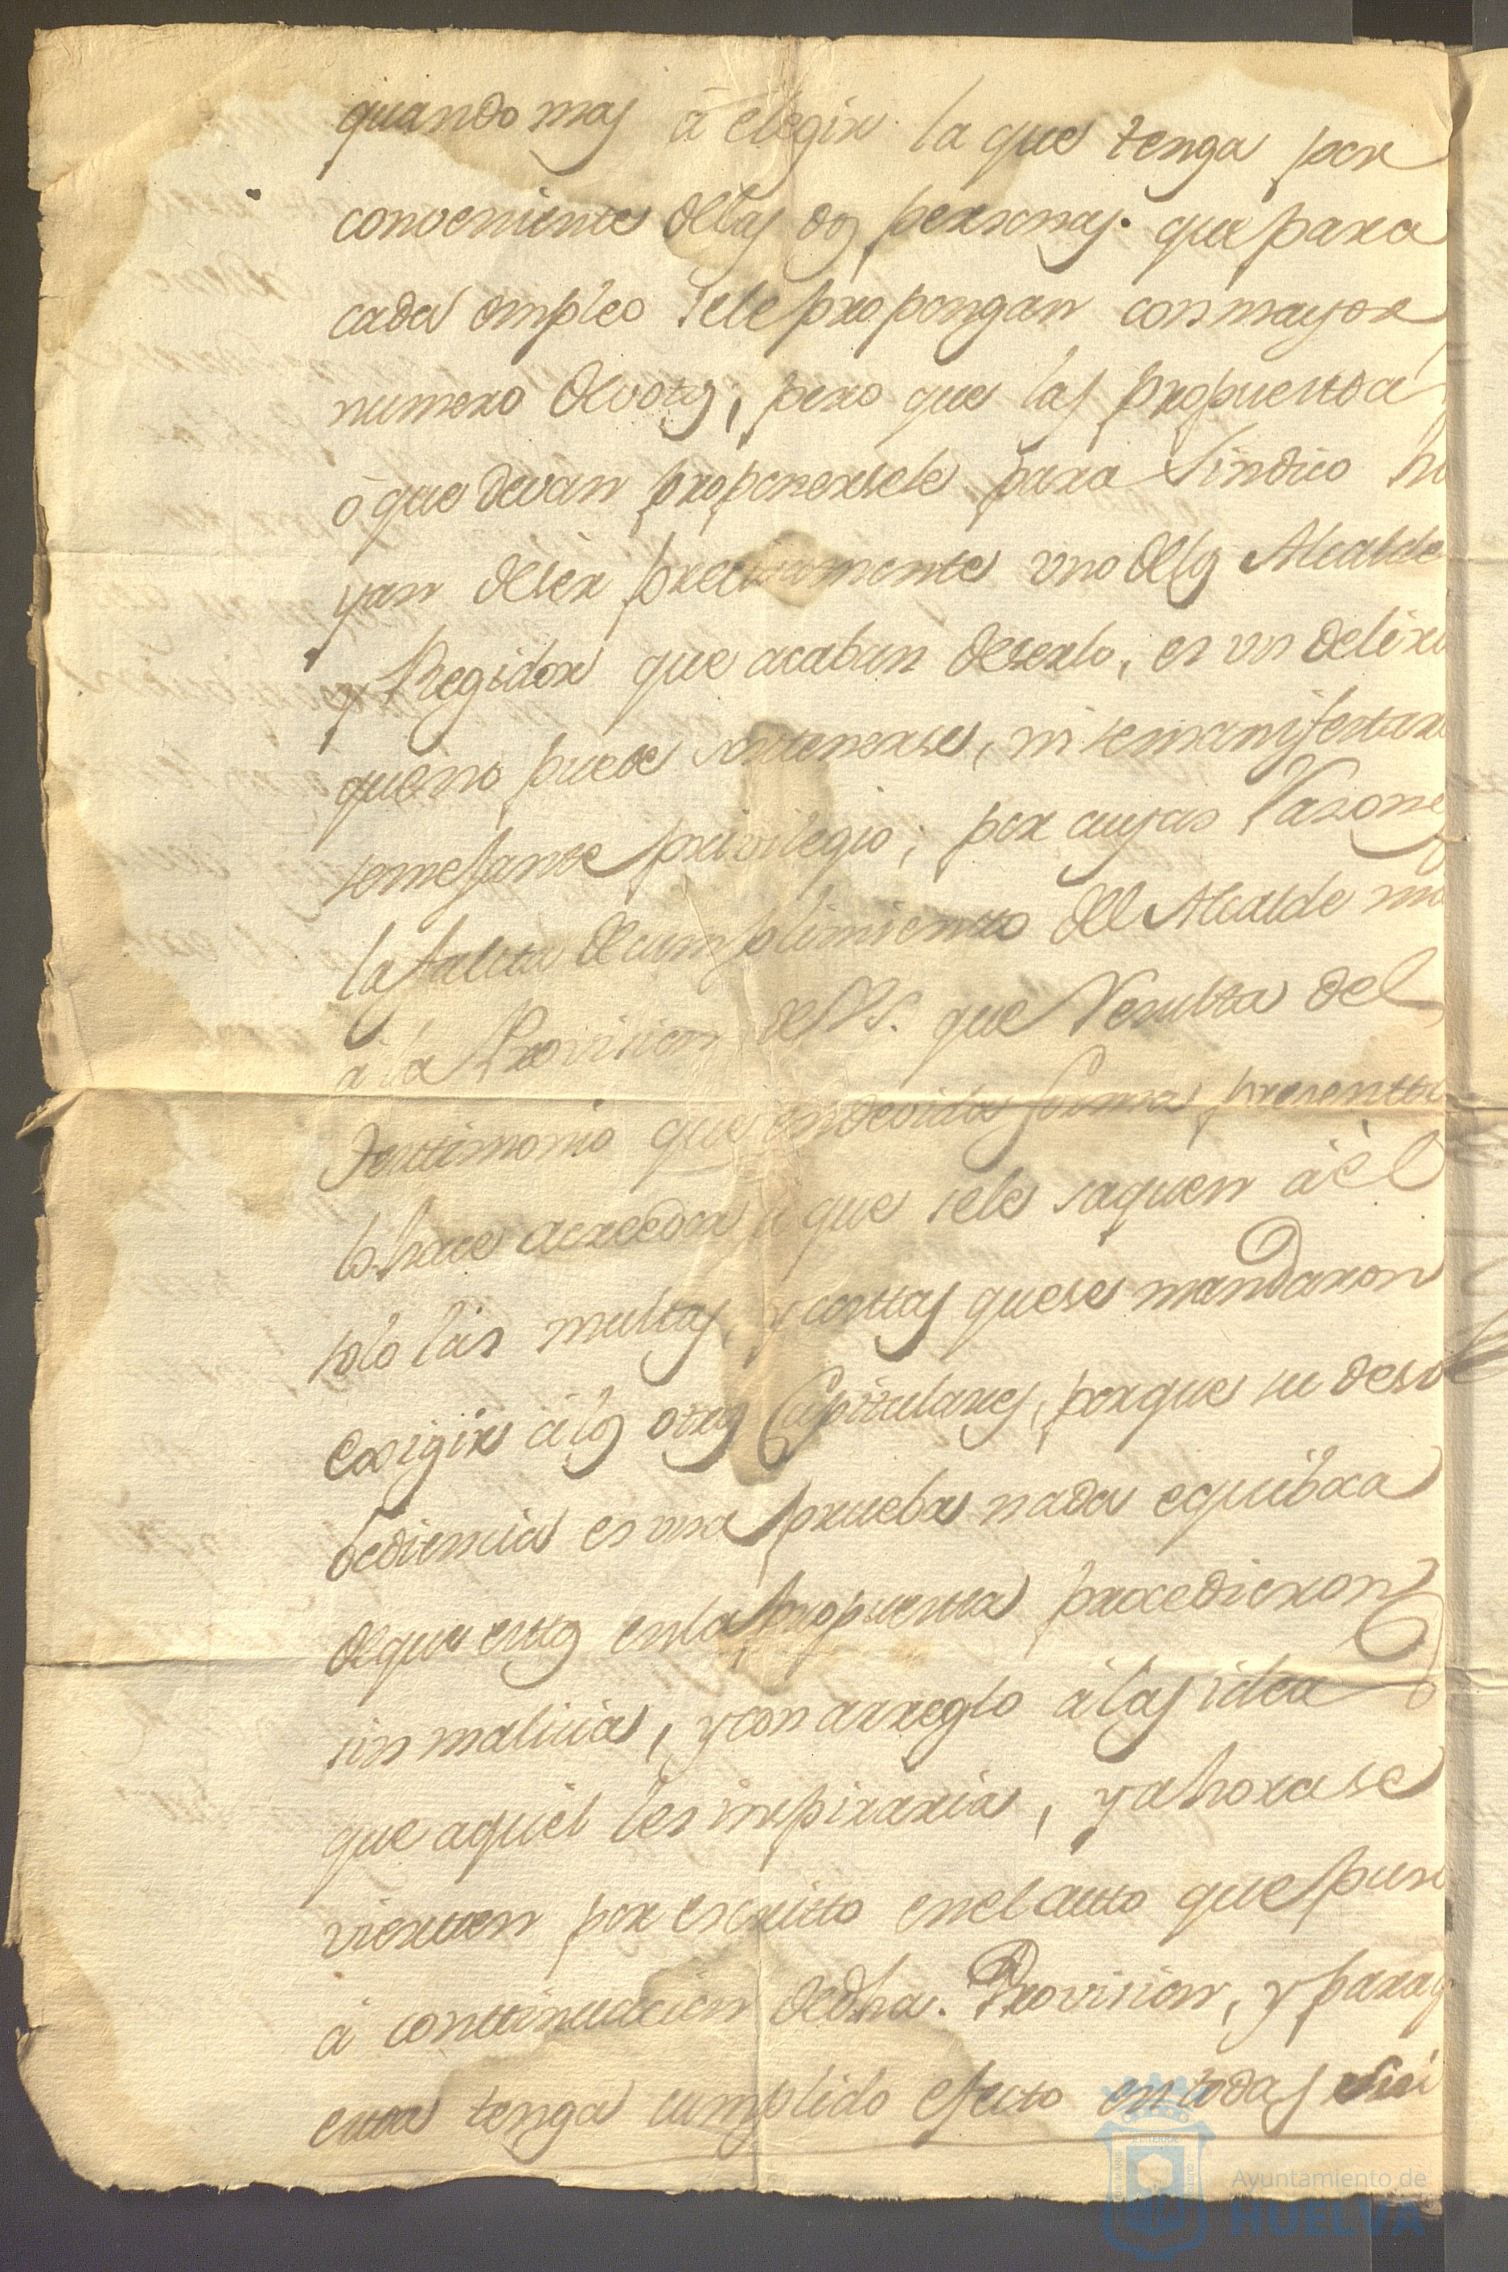 quando mas á elegir la que tenga por
conveniente de las dos personas que para
cada empleo se le propongan con mayor
numero de votos, pero que las propuesta
ó que devan proponersele para Sindico ha
yan de ser precisamente uno de los Alcalde
y Regidor que acaban de serlo, es un delirio
que no puede sostenerse, ni se manifestará
semejante privilegio; por cuyas Razones
la falta de cumplimiento del Alcalde ma
a la Provision de V.S. que Resulta del
testimonio que en devida forma presentto
lo hace acreedor a que se le saquen á él
solo las multas, y costtas que se mandaron
exigir á los otros Capitulares, porque su deso
bediencia es una prueba nada equiboca
de que esttos en la propuesta procedieron
sin malicia, y con arreglo á las idea
que aquel les inspiraria, y ahora se
vierten por escritto en el autto que puso
á conttinuacion de dha. Provision, y para q
estta tenga cumplido efecto en todas sus
Ayuntamiento de
HUELVA